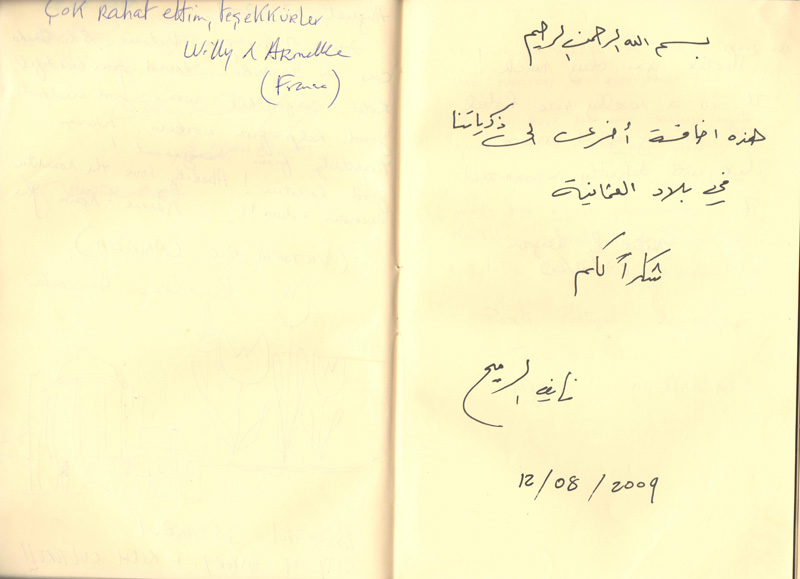 Çok Rahat ettim, teşekkürler
Willy & Armelle
(France)
بسم الله الرحمن الرحيم
هذه اضافة أخرى الى ذكرياتنا
في بلاد العثمانية
شكراً لكم
نايف الرميح
12/08/2009